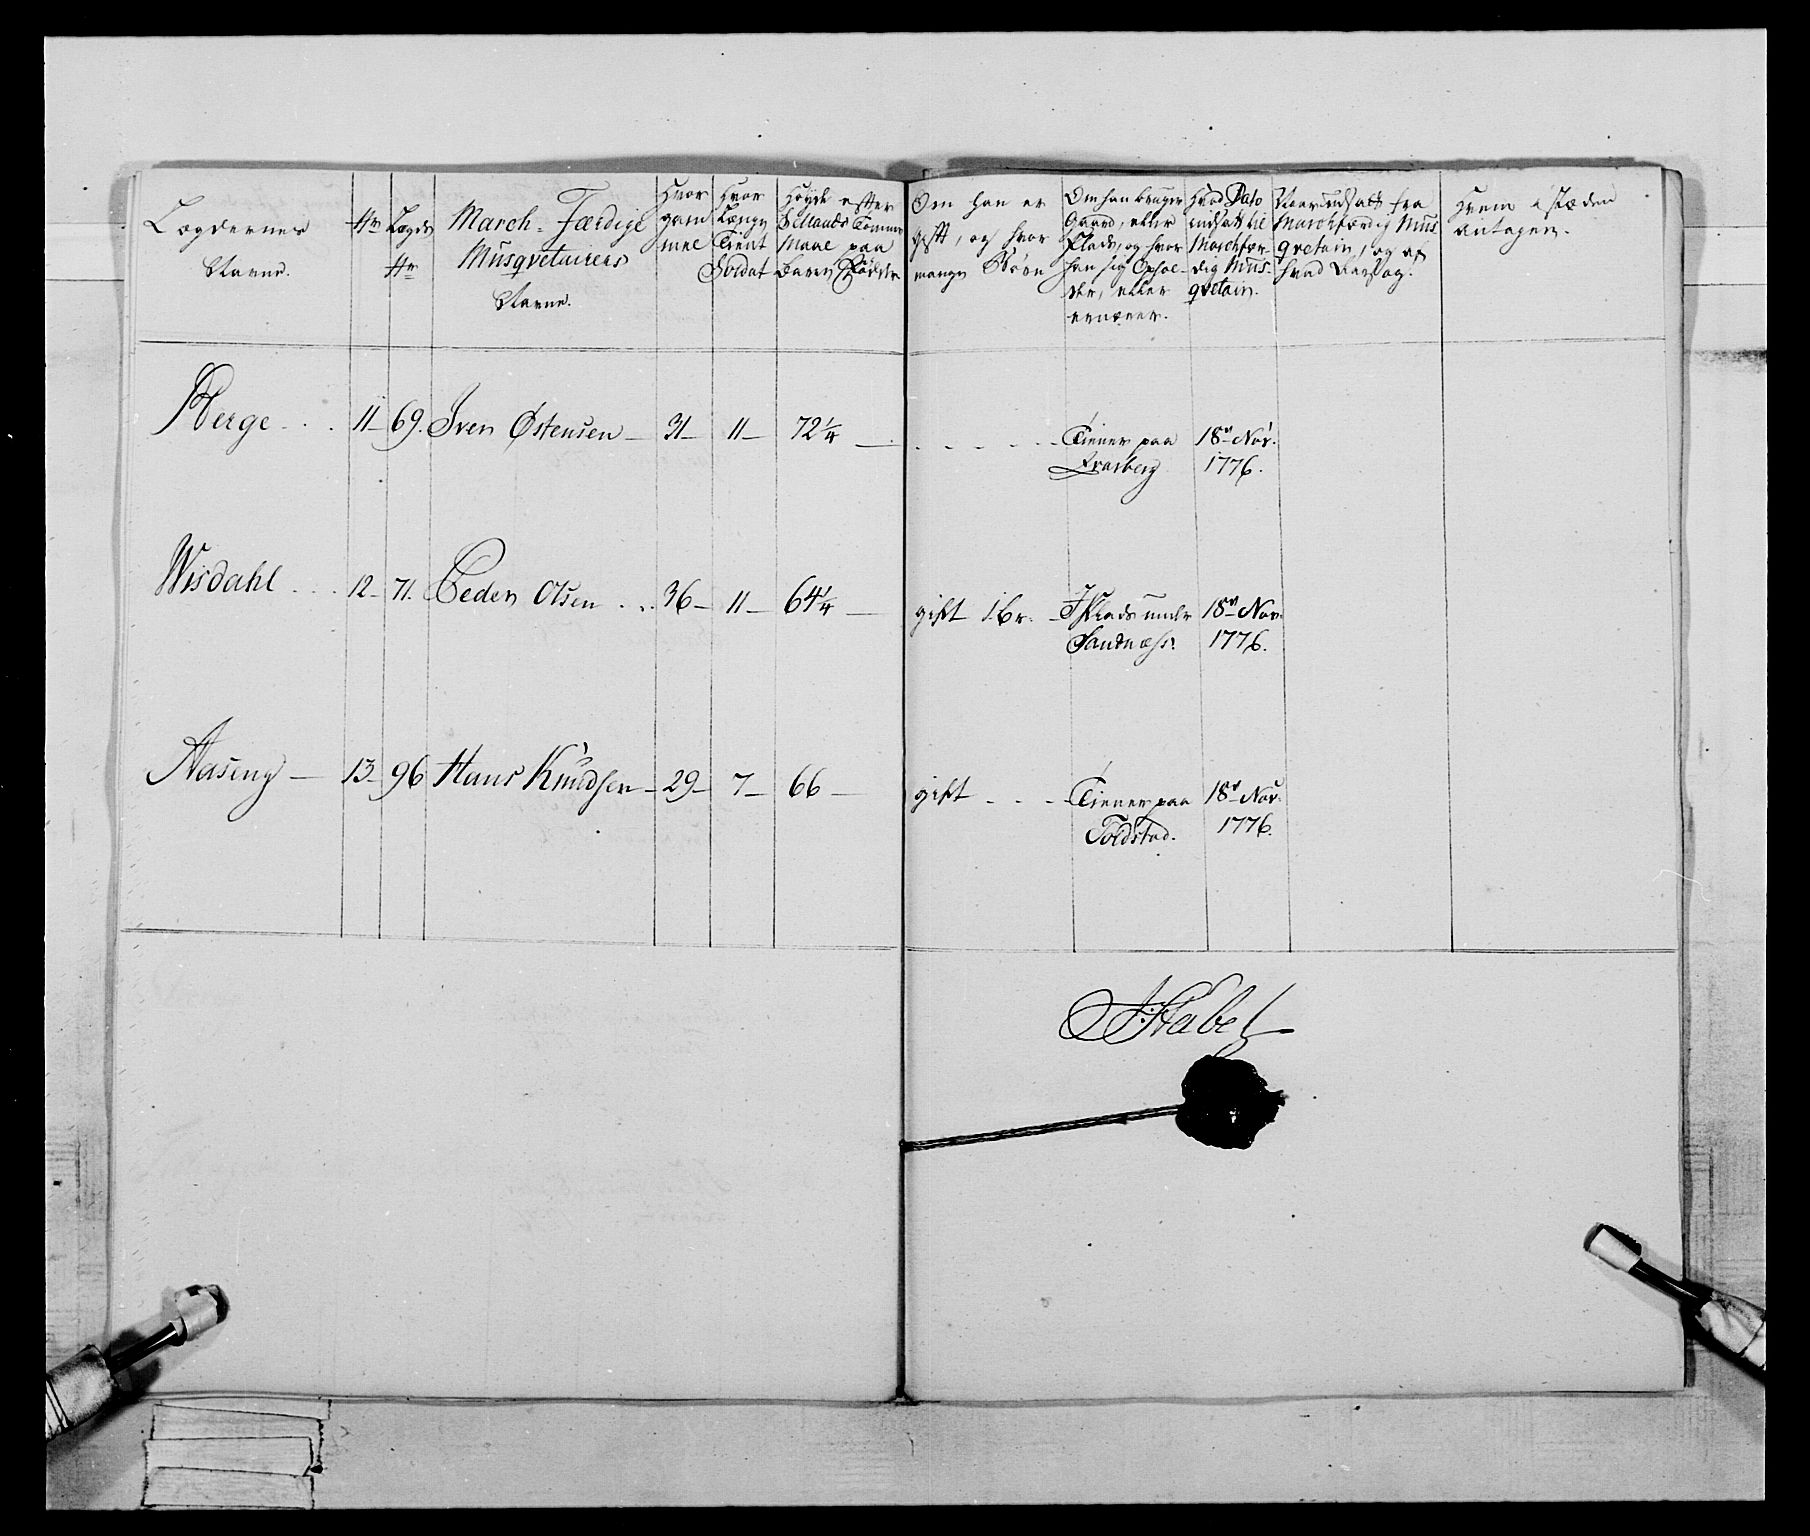 Lægdernes
Navne.
Nr
Lægds
Nr
March-Færdige
Musqvetairers
Navne.
Hvor
gam
mel
Hvor
Længe
Tient
Soldat
Høyde efter
Sellands Comme
Maal paa
Bare Fødder
Om han er
gift, og hvor
mange Børn
Om han bruger
Gaard, eller
Plads, og hvor
han sig Ophol-
der, eller
ernærer.
Hvad Dato
indsatt til
Marchfær-
dig Mus-
qvetair.
Naar udsatt fra
Marchfærdig Mus
qvetair, og af
hvad Aarsag.
Hvem i stæden
antagen.
Berge 11 69. Iver Østensen 31 11 72 1/4 Tiener paa 18de Nov.
1776.
Wisdahl 12 71. Peder Olsen 36 11 64 1/4 gift 1 Br. Plads under 18de Nov.
Sandnæss. 1776.
Aaseng 13 96 Hans Knudsen 29 7 66 gift Tiener paa 18de Nov.
Toldstad. 1776.
Stabel